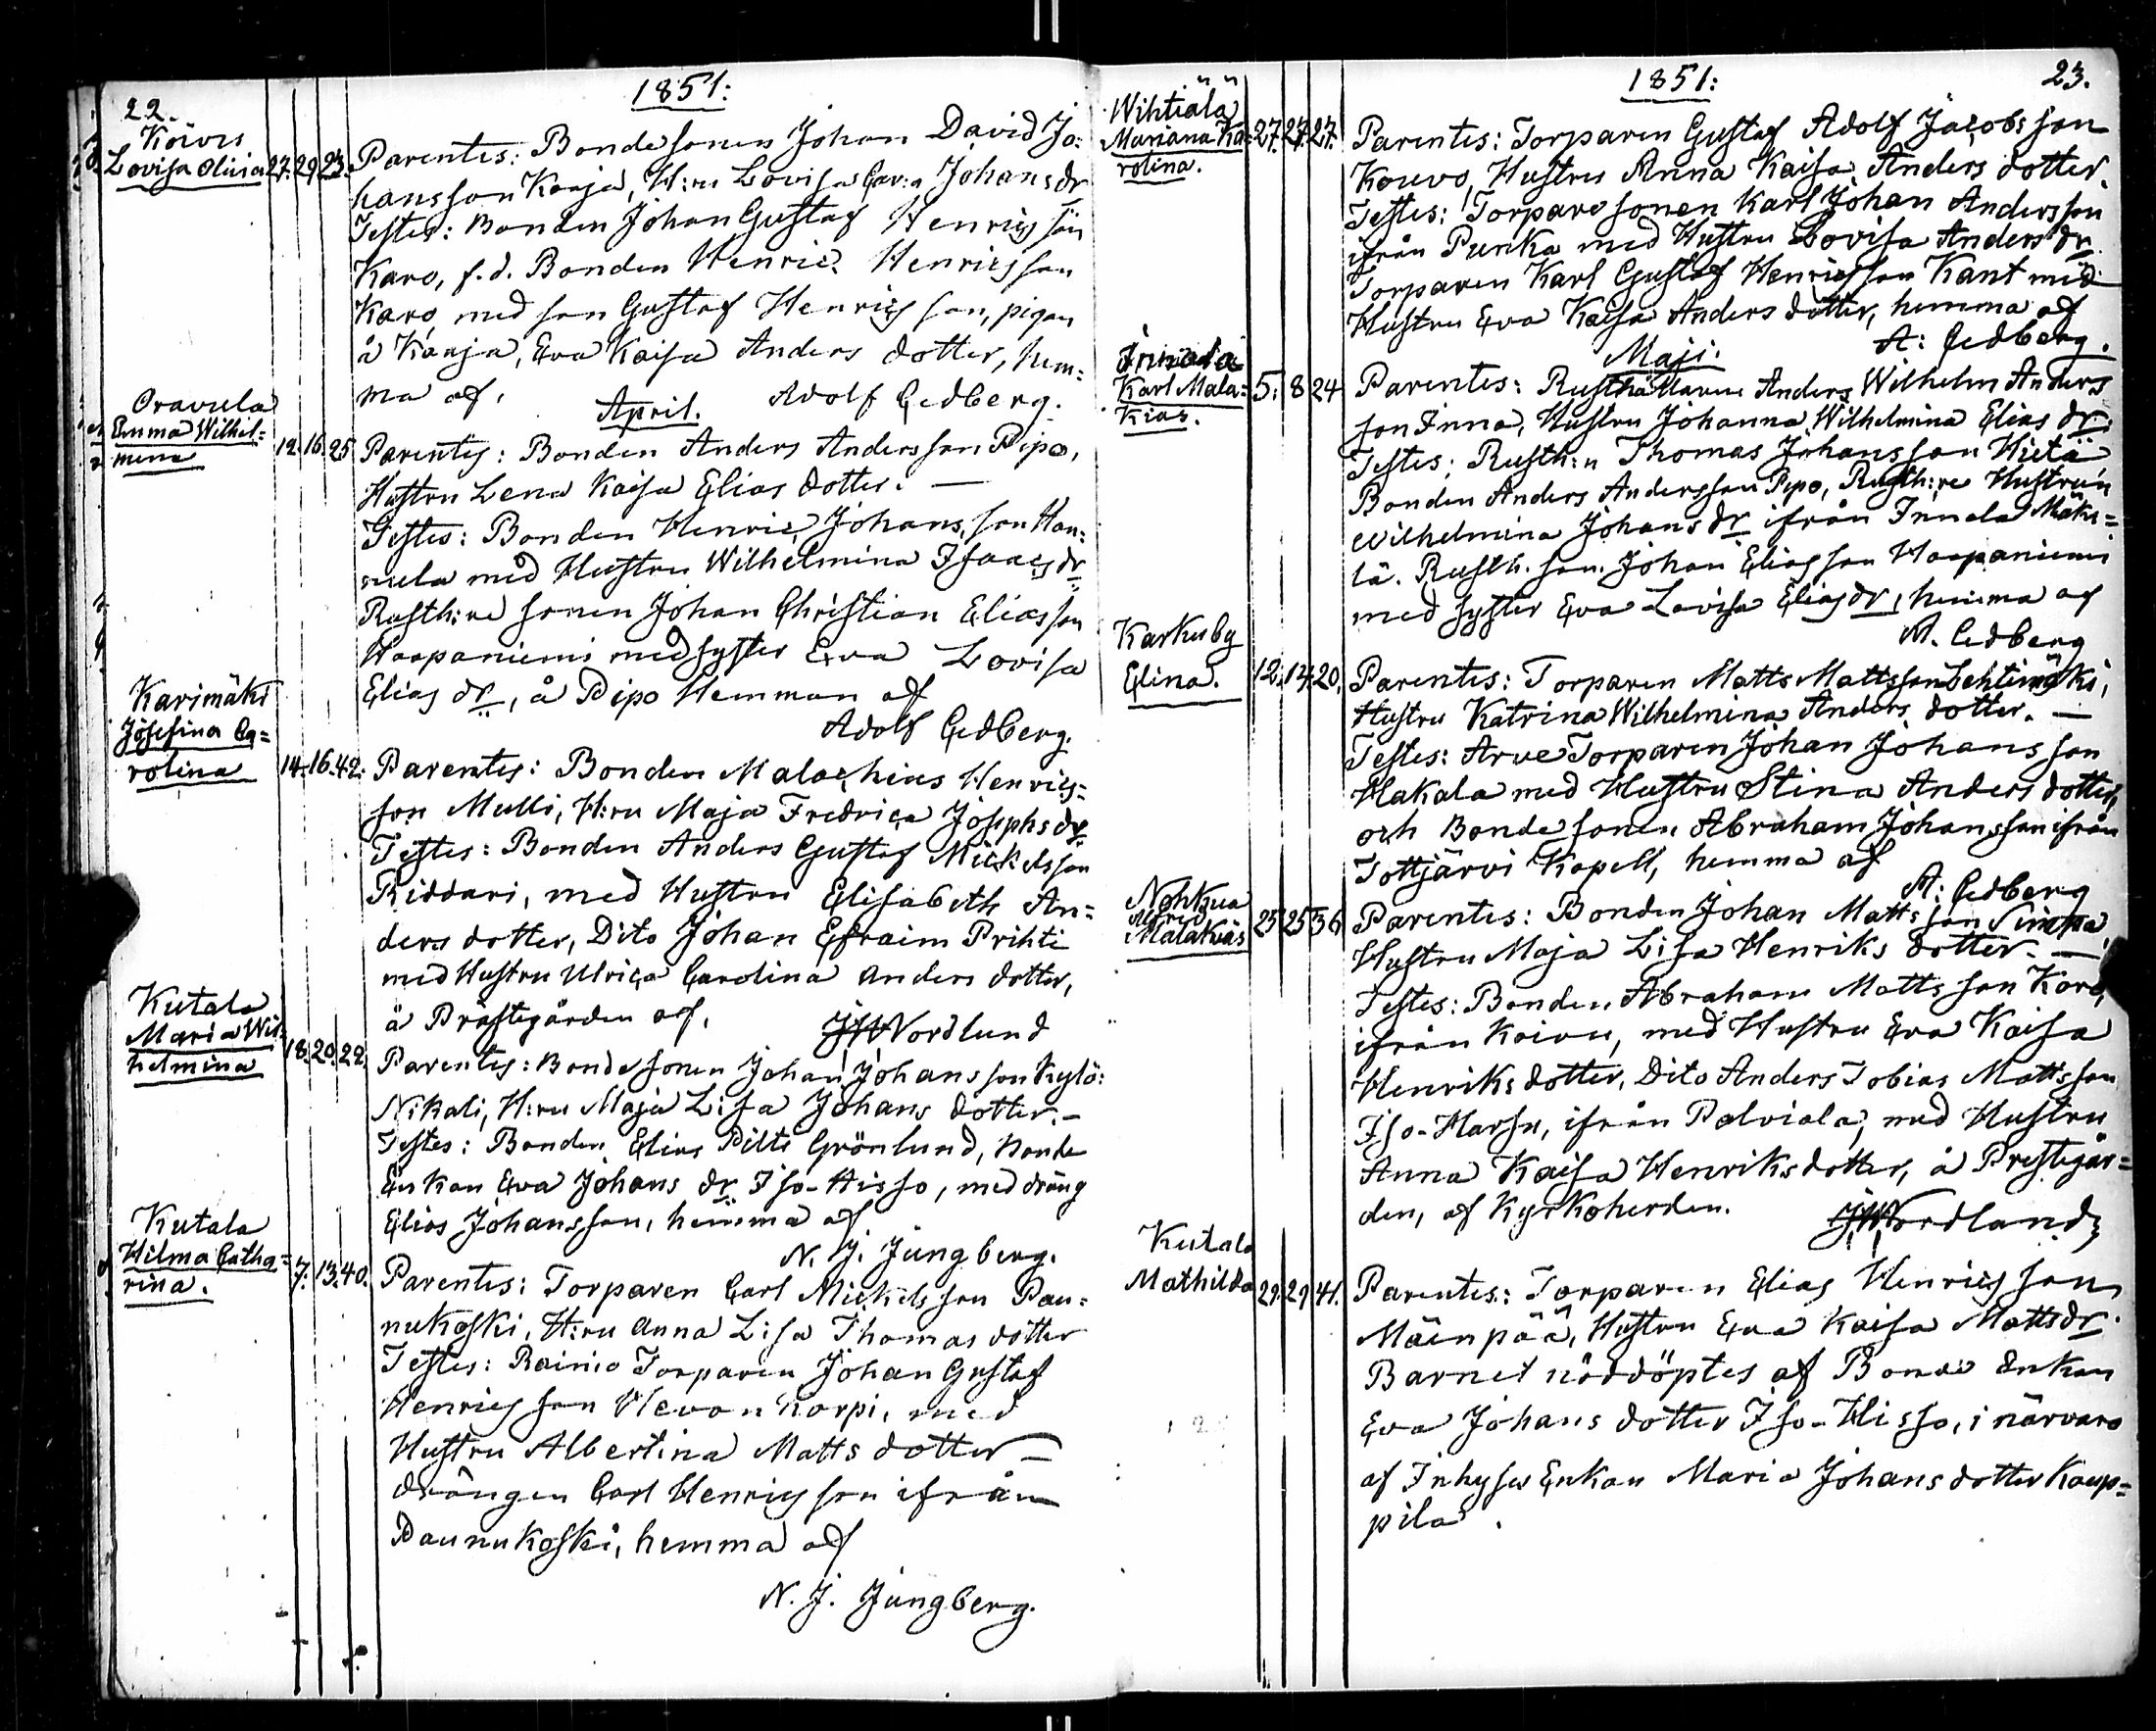 22.
1851:
Koivis
Lovisa Olivia 27. 29. 23.
Parentes: Bondesonen Johan David Jo-
hansson Kaaja, H:ru Lovisa Car:a Johansdr
Testes: Bonden Johan Gustaf Henricsson
Karo, f.d. Bonden Henric Henricsson
Karo med son Gustaf Henricsson, pigan
å Kaaja, Eva Kaisa Anders dotter, hem=
ma af. Adolf Cedberg.
April.
Oravula
Emma Wilhel=
mina 12. 16. 25
Parentes: Bonden Anders Andersson Pipo,
Hustru Lena Kaisa Elias dotter. —
Testes: Bonden Henric Johansson Han=
nula med Hustru Wilhelmina Isaacsdr
Rusth:re sonen Johan Christian Eliasson
Haapaniemi med syster Eva Lovisa
Elias dr, å Pipo Hemman af
Adolf Cedberg.
Karimäki
Josefina Ca=
rolina 14. 16. 42.
Parentes: Bonden Malachias Henrics=
son Mulli, H:ru Maja Fredrica Josephsdr
Testes: Bonden Anders Gustaf Mickelsson
Riddari, med Hustru Elisabeth An=
ders dotter, Dito Johan Efraim Prihti
med Hustru Ulrica Carolina Anders dotter,
å Prästegården af. JWNordlund
Kutala
Maria Wil=
helmina 18. 20. 22.
Parentes: Bondesonen Johan Johansson Kylö:
Nikali, H:ru Maja Lisa Johans dotter. —
Testes: Bonden Elias Pilti Grönlund, Bonde
Enkan Eva Johans dr Iso-Hisso, med dräng
Elias Johansson, hemma af
N. J. Jungberg.
Kutala
Hilma Catha=
rina. 7. 13. 40.
Parentes: Torparen Carl Mickelsson Pau=
nukoski, H:ru Anna Lisa Thomas dotter
Testes: Rainio Torparen Johan Gustaf
Henricsson Hevonkorpi, med
Hustru Albertina Matts dotter —
drängen Carl Henricsson ifrån
Paunukoski, hemma af
N. J. Jungberg.
1851:
23.
Wihtiälä
Mariana Ka=
rolina. 27. 27. 27.
Parentes: Torparen Gustaf Adolf Jacobsson
Kouvo, Hustru Anna Kaisa Anders dotter.
Testes: Torparesonen Karl Johan Andersson
ifrån Punka med Hustru Lovisa Anders dr.
Torparen Karl Gustaf Henricsson Kant med
Hustru Eva Kaisa Anders dotter, hemma af
A: Cedberg.
Maji.
Innala
Karl Mala=
kias. 5. 8 24
Parentes: Rusthållaren Anders Wilhelm Anders
son Inna, Hustru Johanna Wilhelmina Elias dr,
Testes: Rusth:n Thomas Johansson Hietä
Bonden Anders Andersson Pipo, Rusth:re Hustrun
Wilhelmina Johans dr ifrån Innala Mäke=
lä. Rusth. son. Johan Eliasson Haapaniemi
med syster Eva Lovisa Eliasdr, hemma af
A. Cedberg
Karkuby
Elina. 12. 14. 20.
Parentes: Torparen Matts Mattsson Lehtimäki,
Hustru Katrina Wilhelmina Anders dotter. —
Testes: Arve Torparen Johan Johansson
Hakala med Hustru Stina Anders dotter,
och Bondesonen Abraham Johansson ifrån
Tottjärvi Kapell, hemma af
A: Cedberg
Nohkua
Alfred
Malakias 25 25 36
Parentes: Bonden Johan Mattsson Simpa,
Hustru Maja Lisa Henriks dotter. —
Testes: Bonden Abraham Mattsson Karo,
ifrån Koivu, med Hustru Eva Kaisa
Henriks dotter, Dito Anders Tobias Mattsson
Iso-Harsu, ifrån Palviala, med Hustru
Anna Kaisa Henriksdotter, å Prestegår=
den, af Kyrkoherden. JWNordlund
Kutala
Mathilda 29. 29 41.
Parentes: Torparen Elias Henricsson
Mäenpää, Hustru Eva Kaisa Mattsdr.
Barnet nöddöptes af Bonde Enkan
Eva Johans dotter Iso-Hisso, i närvaro
af Inhyses Enkan Maria Johans dotter Kaup=
pila.